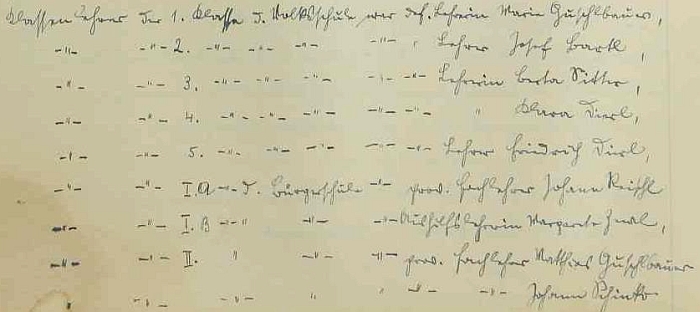 Klassenlehrer der 1. Klasse d. Volksschule war def. Lehrerin Marie Guschlbauer,
-"- -"- 2. -"- -"- -"- -"- " Lehrer Josef Bartl,
-"- -"- 3. -"- -"- -"- -"- Lehrerin Berta Sitter,
-"- -"- 4. -"- -"- -"- -"- -"- " Klara Dierl,
-"- -"- 5. -"- -"- -"- -"- -"- Lehrer Friedrich Dierl,
-"- -"- I.A -"- d. Bürgerschule -"- prov. Fachlehrer Johann Reischl
-"- -"- I.B -"- " -"- -"- Aushilfslehrerin Margarete
-"- -"- II. " -"- -"- prov. Fachlehrer Matthias Guschlbauer
" -"- -"- " -"- -"- Johann Schinko